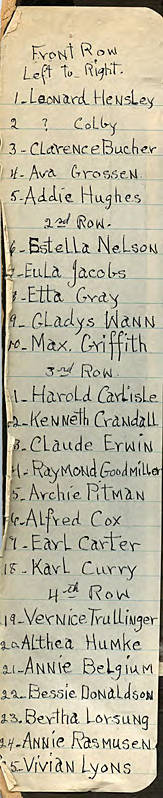 Front Row
Left to Right.
1-Leonard Hensley
2 ? Colby
3-Clarence Bucher
4-Ava Grossen
5-Addie Hughes
2nd Row-
6-Estella Nelson
7-Eula Jacobs
8-Etta Gray
9-Gladys Wann
10-Max. Griffith
3rd Row.
1-Harold Carlisle
2-Kenneth Crandall
3-Claude Erwin
4-Raymond Goodmiller
5-Archie Pitman
6-Alfred Cox
7-Earl Carter
18-Karl Curry
4th Row
19-Vernice Trullinger
20 Althea Humke
21-Annie Belgium
22-Bessie Donaldson
23-Bertha Lorsung
24-Annie Rasmusen
25-Vivian Lyons